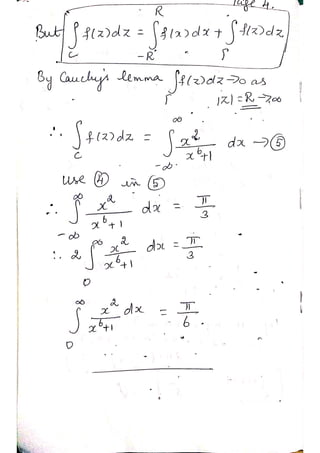 Page 4.
But ∫_C f(z)dz = ∫_{-R}^{R} f(x)dx + ∫_Γ f(z)dz
By Cauchy's lemma ∫_Γ f(z)dz → 0 as
|z| = R → ∞
∴ ∫_C f(z)dz = ∫_{-∞}^{∞} x²/(x⁶+1) dx → ⑤
use ④ in ⑤
∴ ∫_{-∞}^{∞} x²/(x⁶+1) dx = π/3
∴ 2 ∫_0^∞ x²/(x⁶+1) dx = π/3
∫_0^∞ x²/(x⁶+1) dx = π/6.